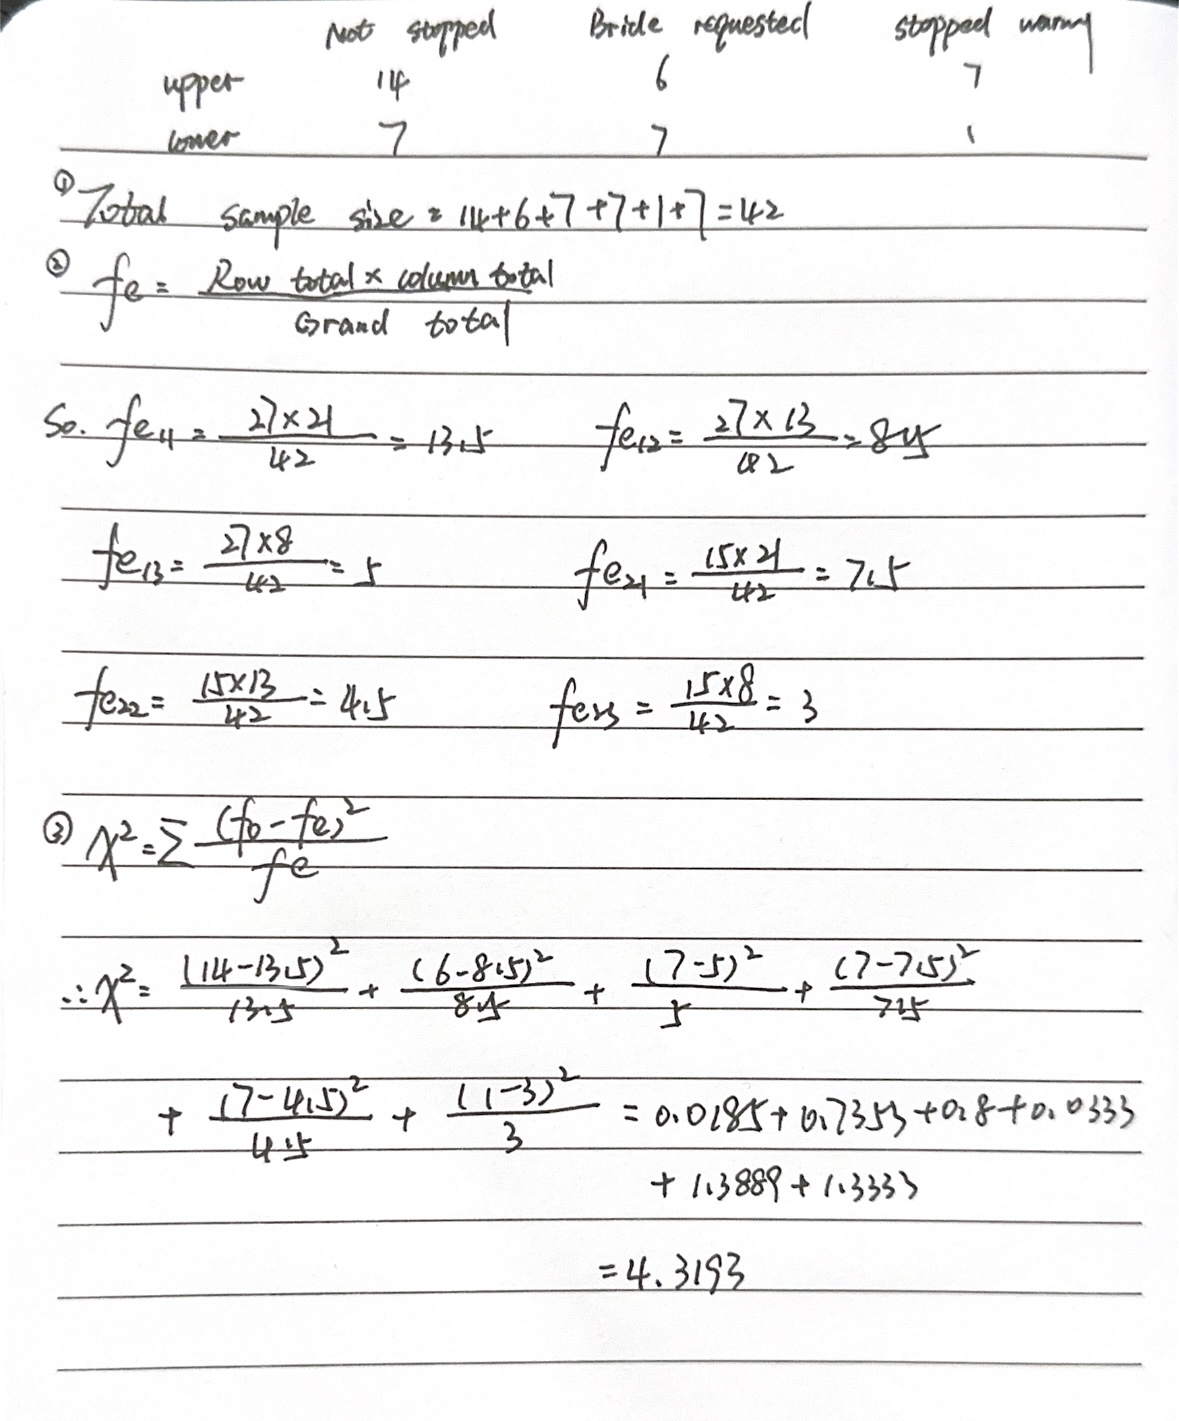 Not stopped Bride requested stopped warny
upper 14 6 7
lower 7 7 1
① Total sample size = 14+6+7+7+1+7=42
② fe = Row total × column total / Grand total
So. fe11 = 27×21 / 42 = 13.5 fe12 = 27×13 / 42 = 8.5
fe13 = 27×8 / 42 = 5 fe21 = 15×21 / 42 = 7.5
fe22 = 15×13 / 42 = 4.5 fe23 = 15×8 / 42 = 3
③ χ² = Σ (fo-fe)² / fe
∴ χ² = (14-13.5)² / 13.5 + (6-8.5)² / 8.5 + (7-5)² / 5 + (7-7.5)² / 7.5
+ (7-4.5)² / 4.5 + (1-3)² / 3 = 0.0185+0.7353+0.8+0.0333
+ 1.3889 + 1.3333
= 4.3193